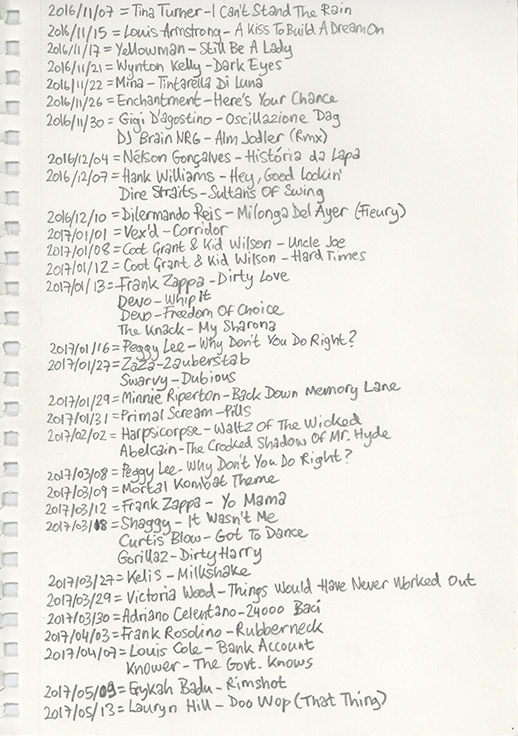 2016/11/07 = Tina Turner - I Can't Stand The Rain
2016/11/15 = Louis Armstrong - A Kiss To Build A Dream On
2016/11/17 = Yellowman - Still Be A Lady
2016/11/21 = Wynton Kelly - Dark Eyes
2016/11/22 = Mina - Tintarella Di Luna
2016/11/26 = Enchantment - Here's Your Chance
2016/11/30 = Gigi D'agostino - Oscillazione Dag
DJ Brain NRG - Alm Jodler (Rmx)
2016/12/04 = Nélson Gonçalves - História da Lapa
2016/12/07 = Hank Williams - Hey, Good Lookin'
Dire Straits - Sultans Of Swing
2016/12/10 = Dilermando Reis - Milonga Del Ayer (Fleury)
2017/01/01 = Vex'd - Corridor
2017/01/08 = Coot Grant & Kid Wilson - Uncle Joe
2017/01/12 = Coot Grant & Kid Wilson - Hard Times
2017/01/13 = Frank Zappa - Dirty Love
Devo - Whip It
Devo - Freedom Of Choice
The Knack - My Sharona
2017/01/16 = Peggy Lee - Why Don't You Do Right?
2017/01/27 = Zaza - Zauberstab
Swarvy - Dubious
2017/01/29 = Minnie Riperton - Back Down Memory Lane
2017/01/31 = Primal Scream - Pills
2017/02/02 = Harpsicorpse - Waltz Of The Wicked
Abelcain - The Crooked Shadow Of Mr. Hyde
2017/03/08 = Peggy Lee - Why Don't You Do Right?
2017/03/09 = Mortal Kombat Theme
2017/03/12 = Frank Zappa - Yo Mama
2017/03/18 = Shaggy - It Wasn't Me
Curtis Blow - Got To Dance
Gorillaz - Dirty Harry
2017/03/27 = Kelis - Milkshake
2017/03/29 = Victoria Wood - Things Would Have Never Worked Out
2017/03/30 = Adriano Celentano - 24000 Baci
2017/04/03 = Frank Rosolino - Rubberneck
2017/04/07 = Louis Cole - Bank Account
Knower - The Govt. Knows
2017/05/09 = Erykah Badu - Rimshot
2017/05/13 = Lauryn Hill - Doo Wop (That Thing)